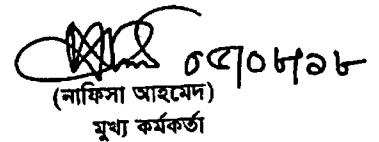 ০৫|০৮|১৮
(নাফিসা আহমেদ)
মুখ্য কর্মকর্তা